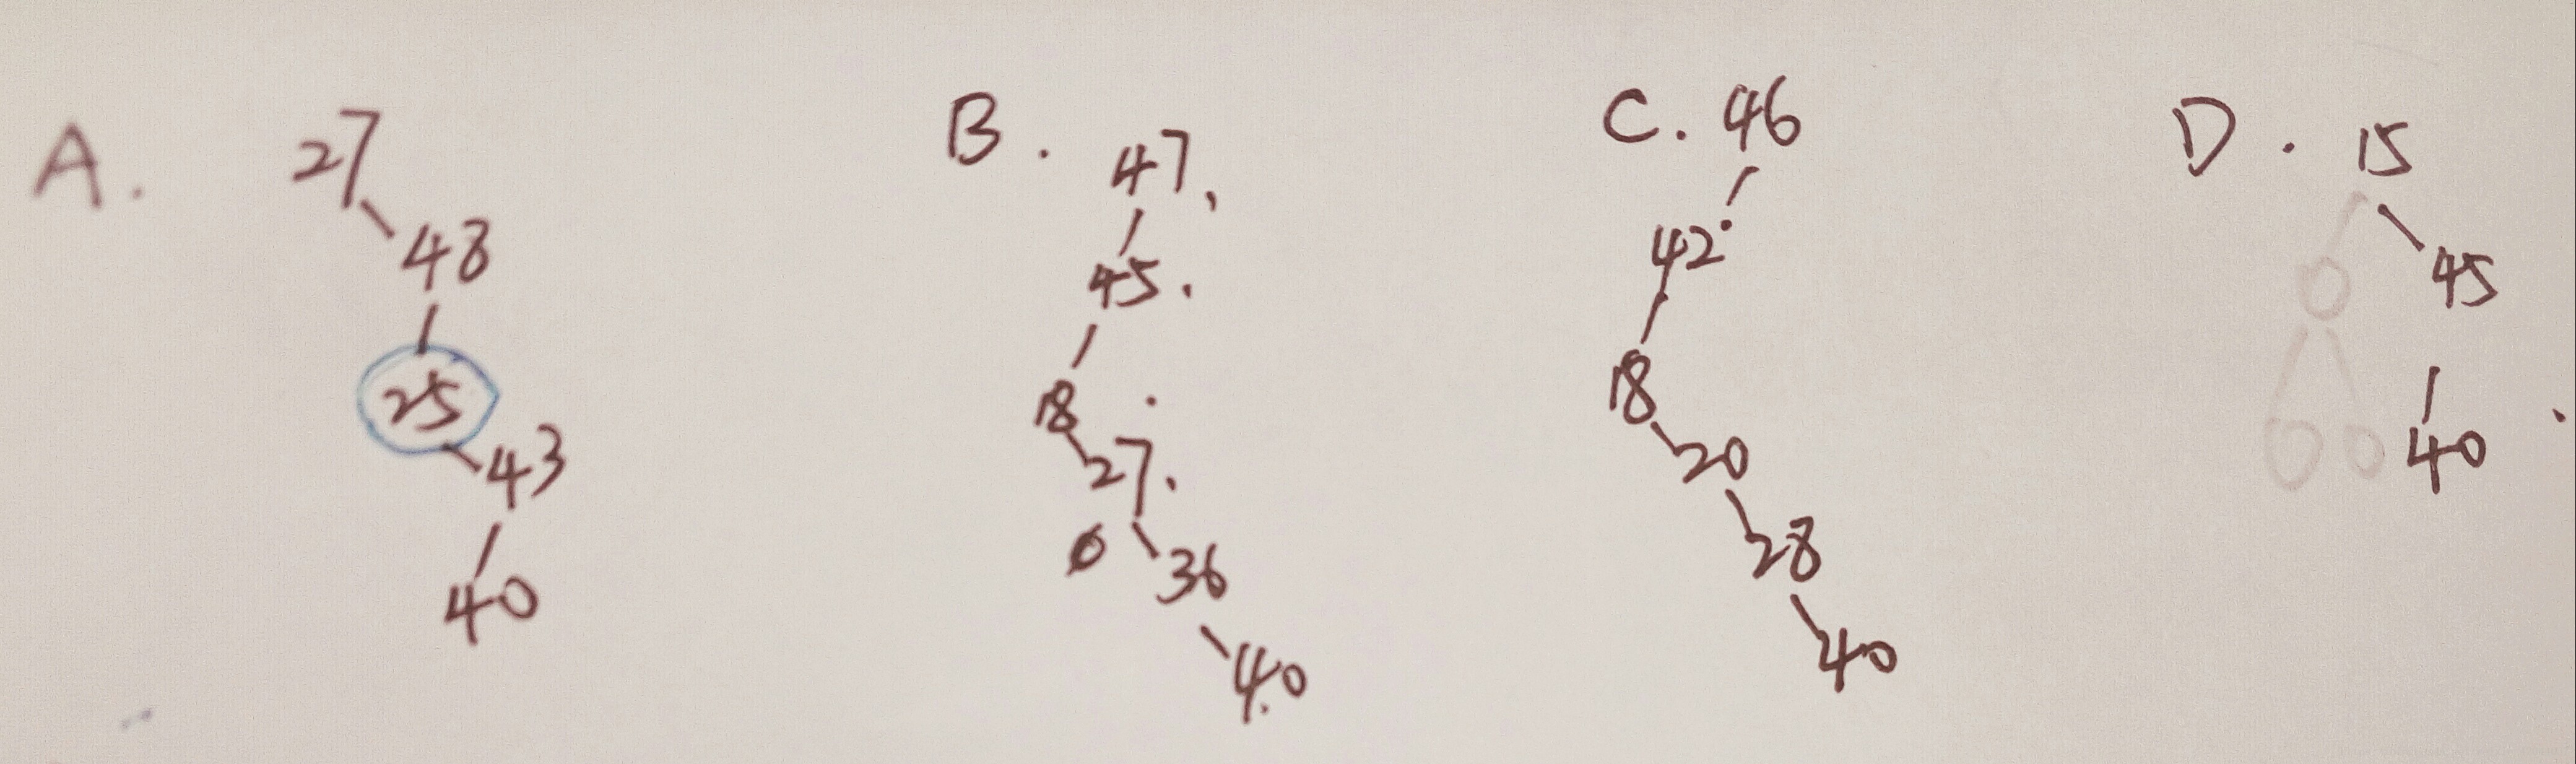 A. 27
48
25
43
40
B. 47.
45.
18
27.
36
40
C. 46
42
18
20
28
40
D. 15
45
40